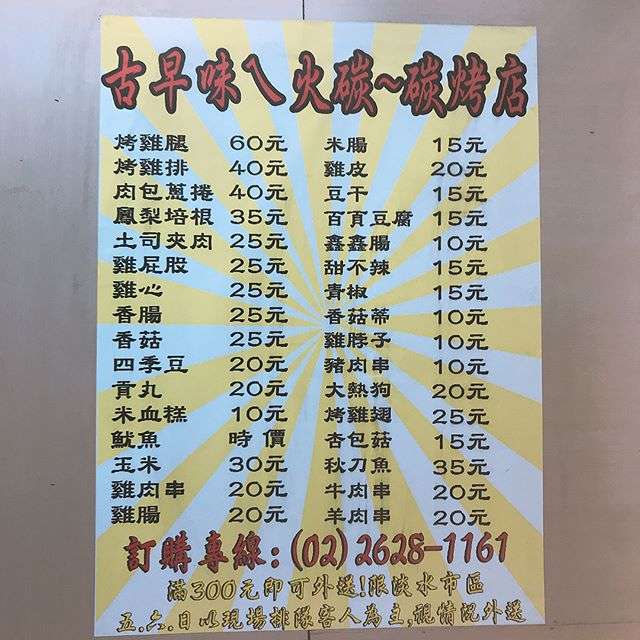 古早味ㄟ火碳~碳烤店
烤雞腿 60元
烤雞排 40元
肉包蔥捲 40元
鳳梨培根 35元
土司夾肉 25元
雞屁股 25元
雞心 25元
香腸 25元
香菇 25元
四季豆 20元
貢丸 20元
米血糕 10元
魷魚 時價
玉米 30元
雞肉串 20元
雞腸 20元
米腸 15元
雞皮 20元
豆干 15元
百頁豆腐 15元
鑫鑫腸 10元
甜不辣 15元
青椒 15元
香菇蒂 10元
雞脖子 10元
豬肉串 10元
大熱狗 20元
烤雞翅 25元
杏包菇 15元
秋刀魚 35元
牛肉串 20元
羊肉串 20元
訂購專線:(02)2628-1161
滿300元即可外送!限淡水市區
五.六.日以現場排隊客人為主,視情況外送